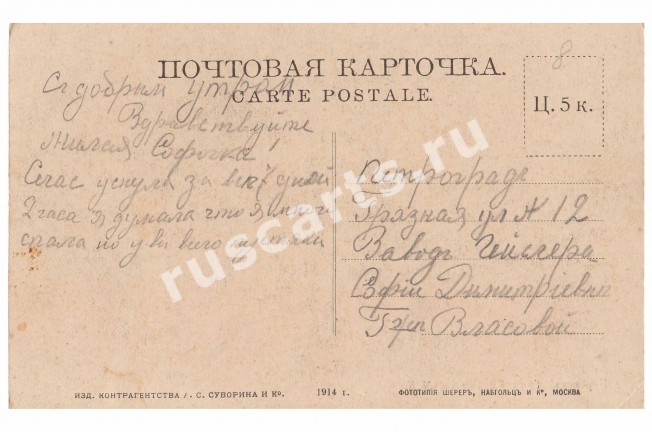 8
ПОЧТОВАЯ КАРТОЧКА.
CARTE POSTALE.
Ц. 5 к.
Съ добрым утром
Здравствуйте
милая Софочка!
Сейчас уснула за все 7 дней
2 часа я думала что я много
спала но увы всего
Петроградъ
Грязная ул № 12
Заводъ Гейслера
Софіи Димитріевны
Власовой
ruscarts.ru
ИЗД. КОНТРАГЕНТСТВА А. С. СУВОРИНА И Ко. 1914 г. ФОТОТИПІЯ ШЕРЕРЪ, НАБГОЛЬЦЪ И Ко, МОСКВА